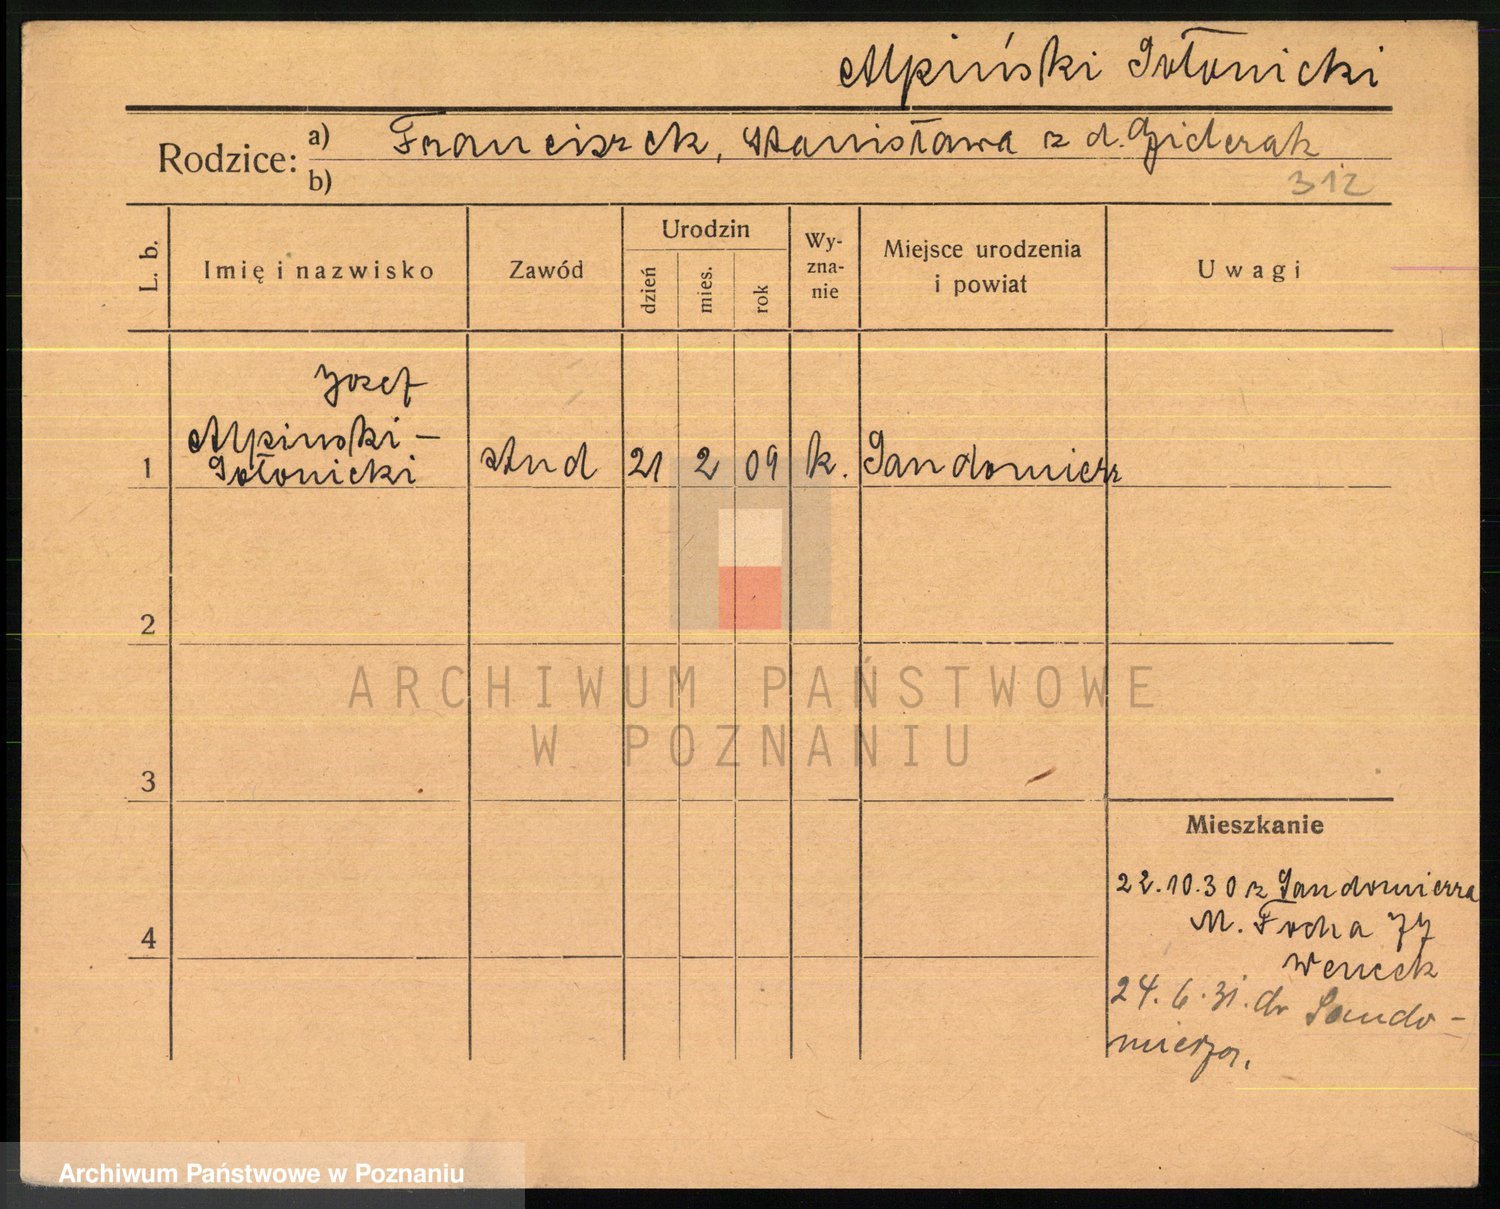 Alpiński Sołonicki
Rodzice: a) Franciszek, Stanisława z d.
b)
312
L. b. Imię i nazwisko Zawód Urodzin dzień mies. rok Wy-zna-nie Miejsce urodzenia i powiat Uwagi
Józef
Alpinski-
1 Sołonicki stud 21 2 09 k. Sandomierz
2
ARCHIWUM PAŃSTWOWE
W POZNANIU
3
Mieszkanie
22.10.30 z Sandomierza
M. Focha 77
4
Wencek
24.6.31. do Sando-
mierza.
Archiwum Państwowe w Poznaniu